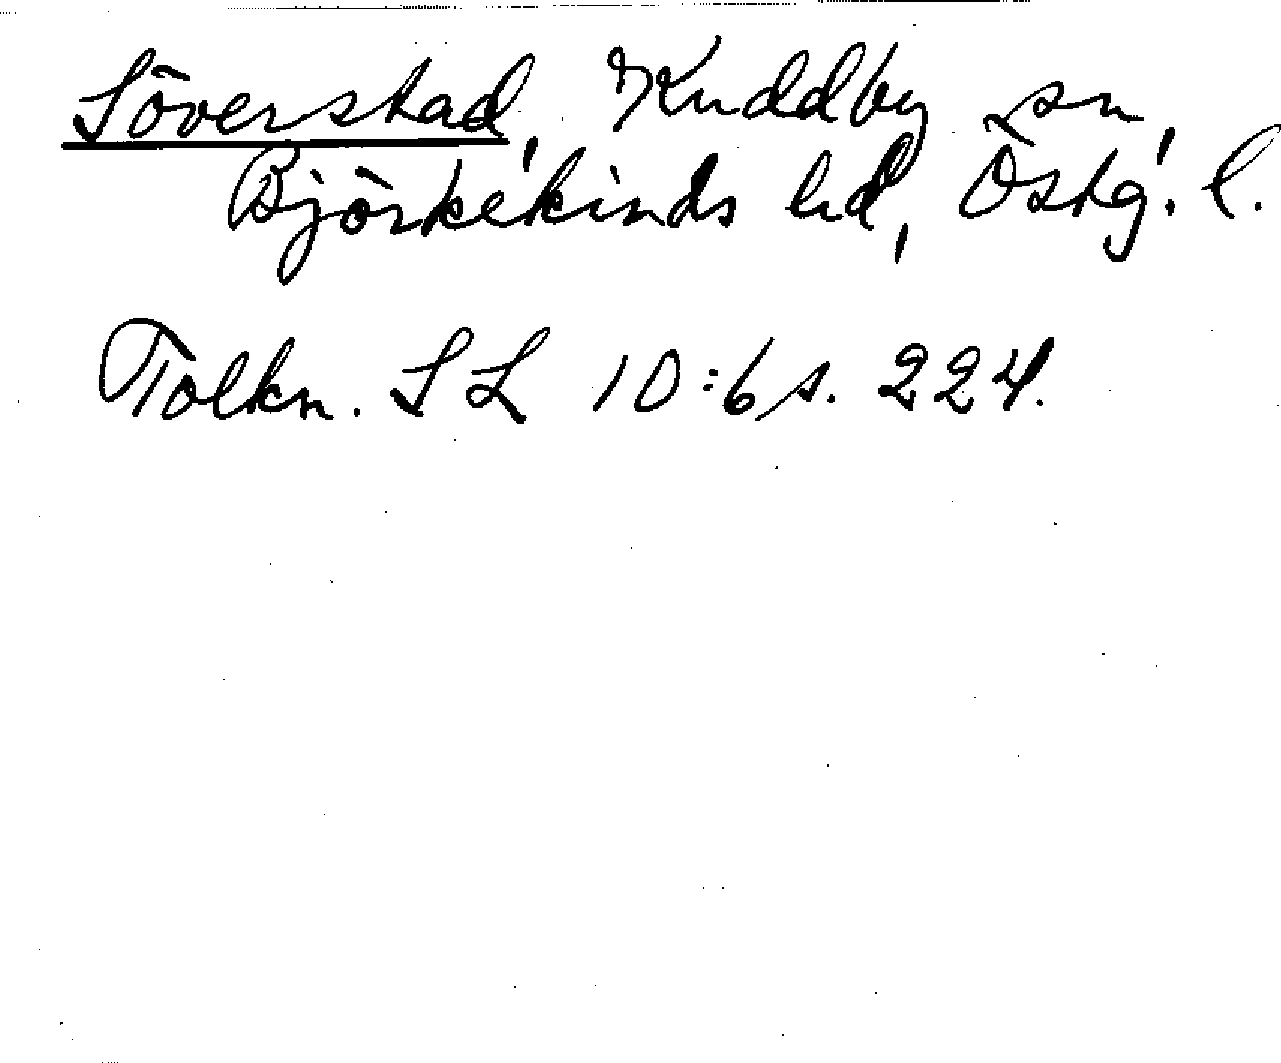 Söverstad, Kuddby sn,
Björkekinds hd, Östg. l.
Tolkn. SL 10:6 s. 224.